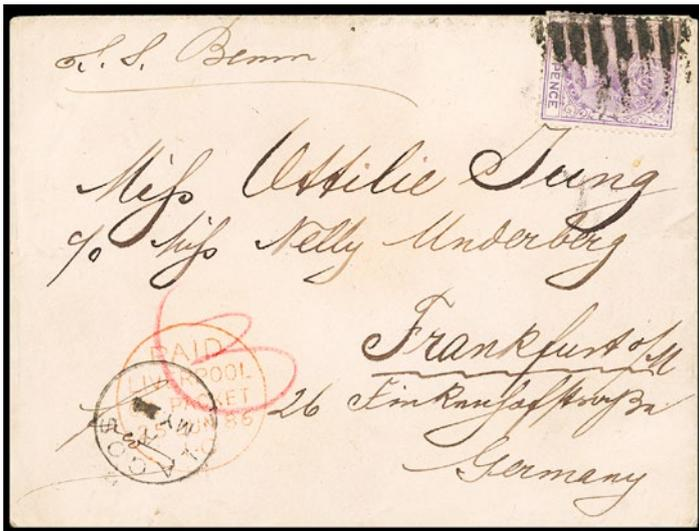 S. S. Benin
PENCE
Miss Ottilie Jung
c/o Miss Nelly Underberg
Frankfurt a/M
26 Finkenhofstraße
Germany
PAID
LIVERPOOL
PACKET
25 JUN 86
LAGOS
MY